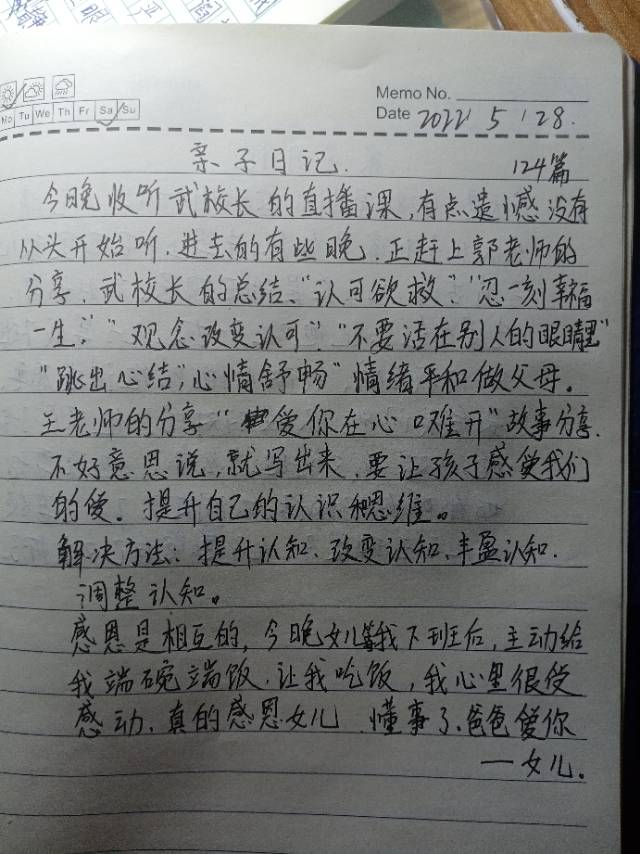 Memo No.
Mo Tu We Th Fr Sa Su
Date 2022 5 28.
亲子日记.
124篇
今晚收听武校长的直播课,有点遗憾没有
从头开始听.进去的有些晚.正赶上郭老师的
分享.武校长的总结、"认可欲救"."忍一刻幸福
一生,""观念改变认可""不要活在别人的眼睛里"
"跳出心结","心情舒畅"情绪平和做父母。
王老师的分享"爱你在心口难开"故事分享.
不好意思说,就写出来.要让孩子感受我们
的爱。提升自己的认识和思维。
解决方法:提升认知.改变认知.丰盈认知.
调整认知。
感恩是相互的,今晚女儿等我下班后,主动给
我端碗端饭.让我吃饭,我心里很受
感动.真的感恩女儿.懂事了.爸爸爱你
一女儿.